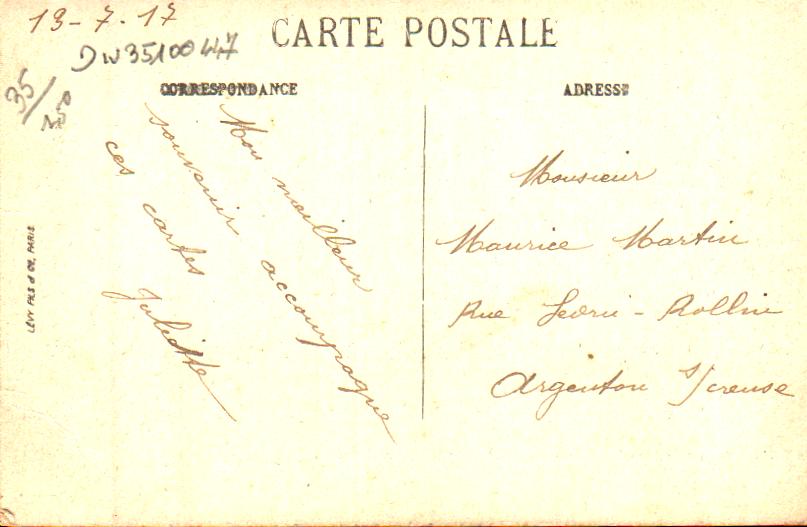 19-7.17
DW3510047
35/
CARTE POSTALE
CORRESPONDANCE
ADRESSE
Mon meilleur
souvenir accompagne
ces cartes
Juliette
Monsieur
Maurice Martin
Rue Ledru-Rollin
Argenton s/creuse
LÉVY FILS & Cie, PARIS